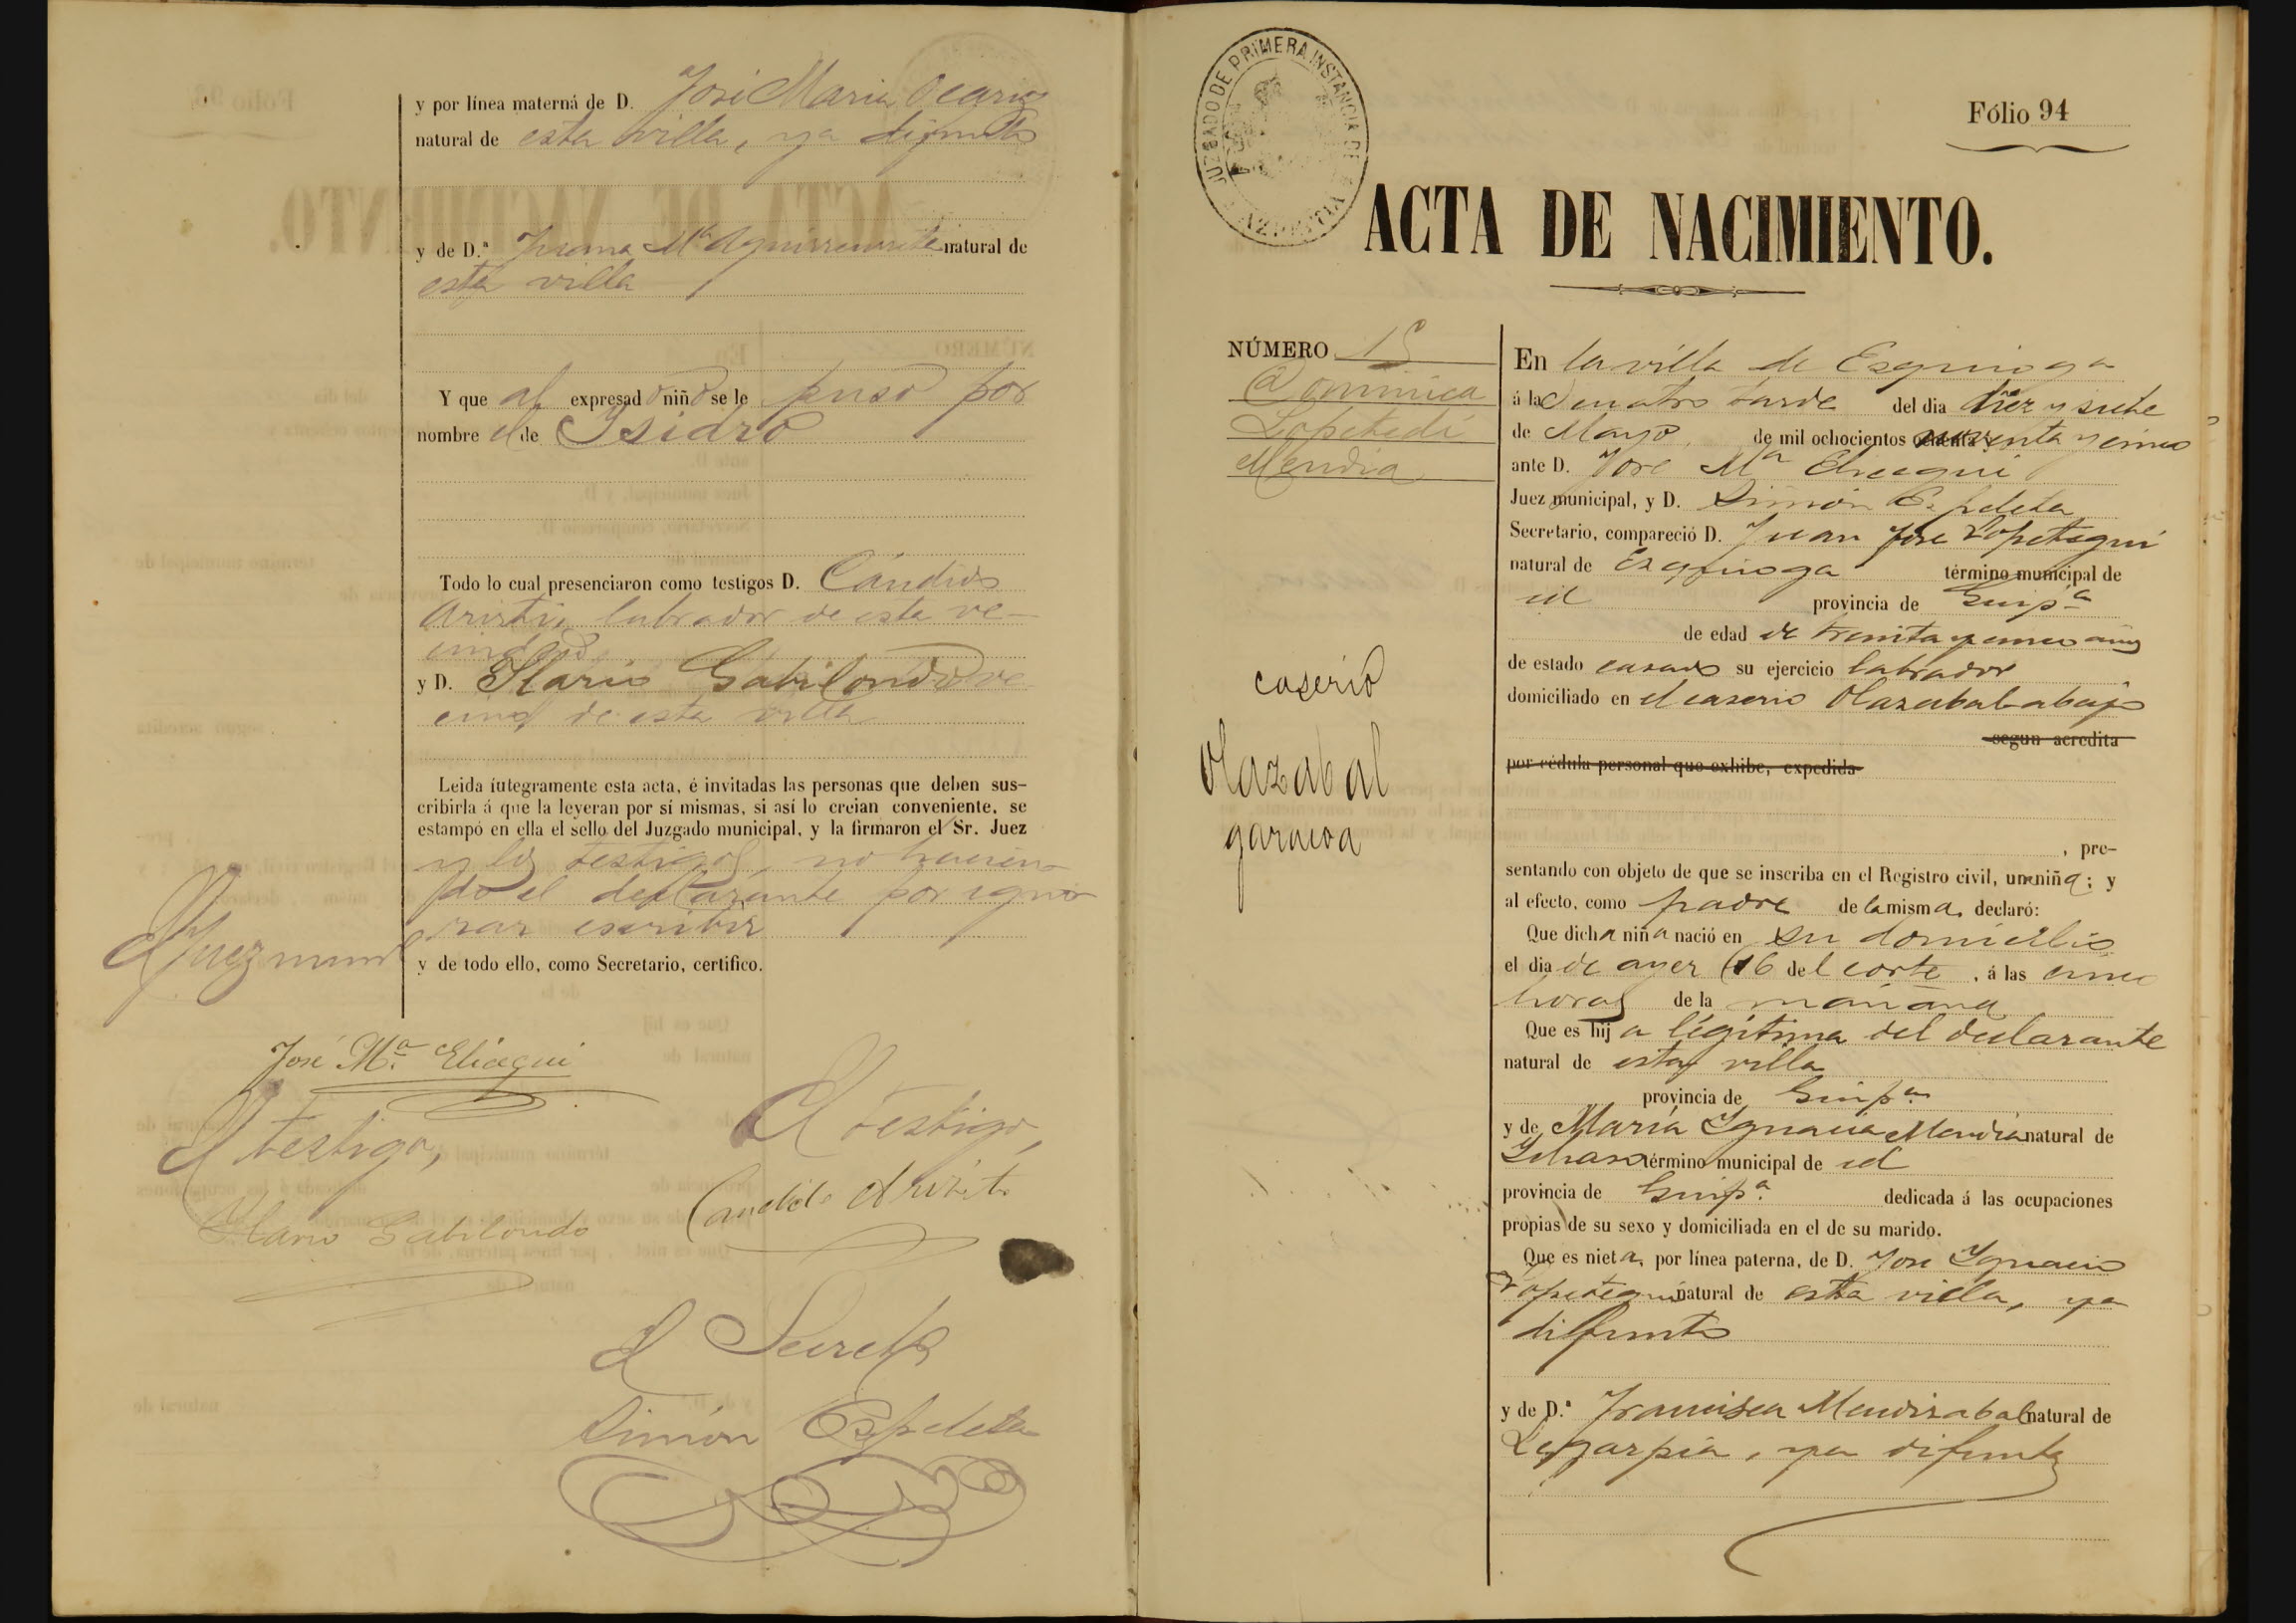 y por línea materna de D. José Maria Ocariz
natural de esta villa, ya difunto
y de D.ª Juana Mª Aguirreurreta natural de
esta villa
Y que al expresado niño se le puso por
nombre el de Ysidro
Todo lo cual presenciaron como testigos D. Cándido
Aristi, labrador de esta ve-
cindad
y D. Ylario Gabilondo ve
cino de esta villa
Leida íntegramente esta acta, é invitadas las personas que deben sus-
cribirla á que la leyeran por sí mismas, si así lo creian conveniente, se
estampó en ella el sello del Juzgado municipal, y la firmaron el Sr. Juez
y los testigos, no hacien-
do el declarante por igno-
rar escribir
y de todo ello, como Secretario, certifico.
El Juez muni
José Mª Eliaegui
El testigo,
Ylario Gabilondo
El testigo,
Candido Aristi
El Secretº
Simón Espeleta
JUZGADO DE PRIMERA INSTANCIA DE
Fólio 94
ACTA DE NACIMIENTO.
NÚMERO 15
Dominica
Lopetedi
Mendia
caserio
Olazabal
garaicoa
En la villa de Ezquioga
á las cuatro tarde del dia diez y siete
de Mayo de mil ochocientos noventa y cinco
ante D. José Mª Eliaegui
Juez municipal, y D. Simón Espeleta
Secretario, compareció D. Juan José Lopetegui
natural de Ezquioga término municipal de
id provincia de Guipª
de edad de treinta y cinco años
de estado casado su ejercicio labrador
domiciliado en el caserio Olazabal abajo
segun acredita
por cédula personal que exhibe, expedida
, pre-
sentando con objeto de que se inscriba en el Registro civil, una niña; y
al efecto, como padre de la misma, declaró:
Que dicha niña nació en su domicilio
el dia de ayer (16 del corte, á las cinco
horas de la mañana
Que es hija légitima del declarante
natural de esta villa
provincia de Guipª
y de María Ygnacia Mendia natural de
término municipal de id
provincia de Guipª dedicada á las ocupaciones
propias de su sexo y domiciliada en el de su marido.
Que es nieta, por línea paterna, de D. José Ygnacio
Lopetegui natural de esta villa, ya
difunto
y de D.ª Francisca Mendizabal natural de
Legazpia, ya difunta